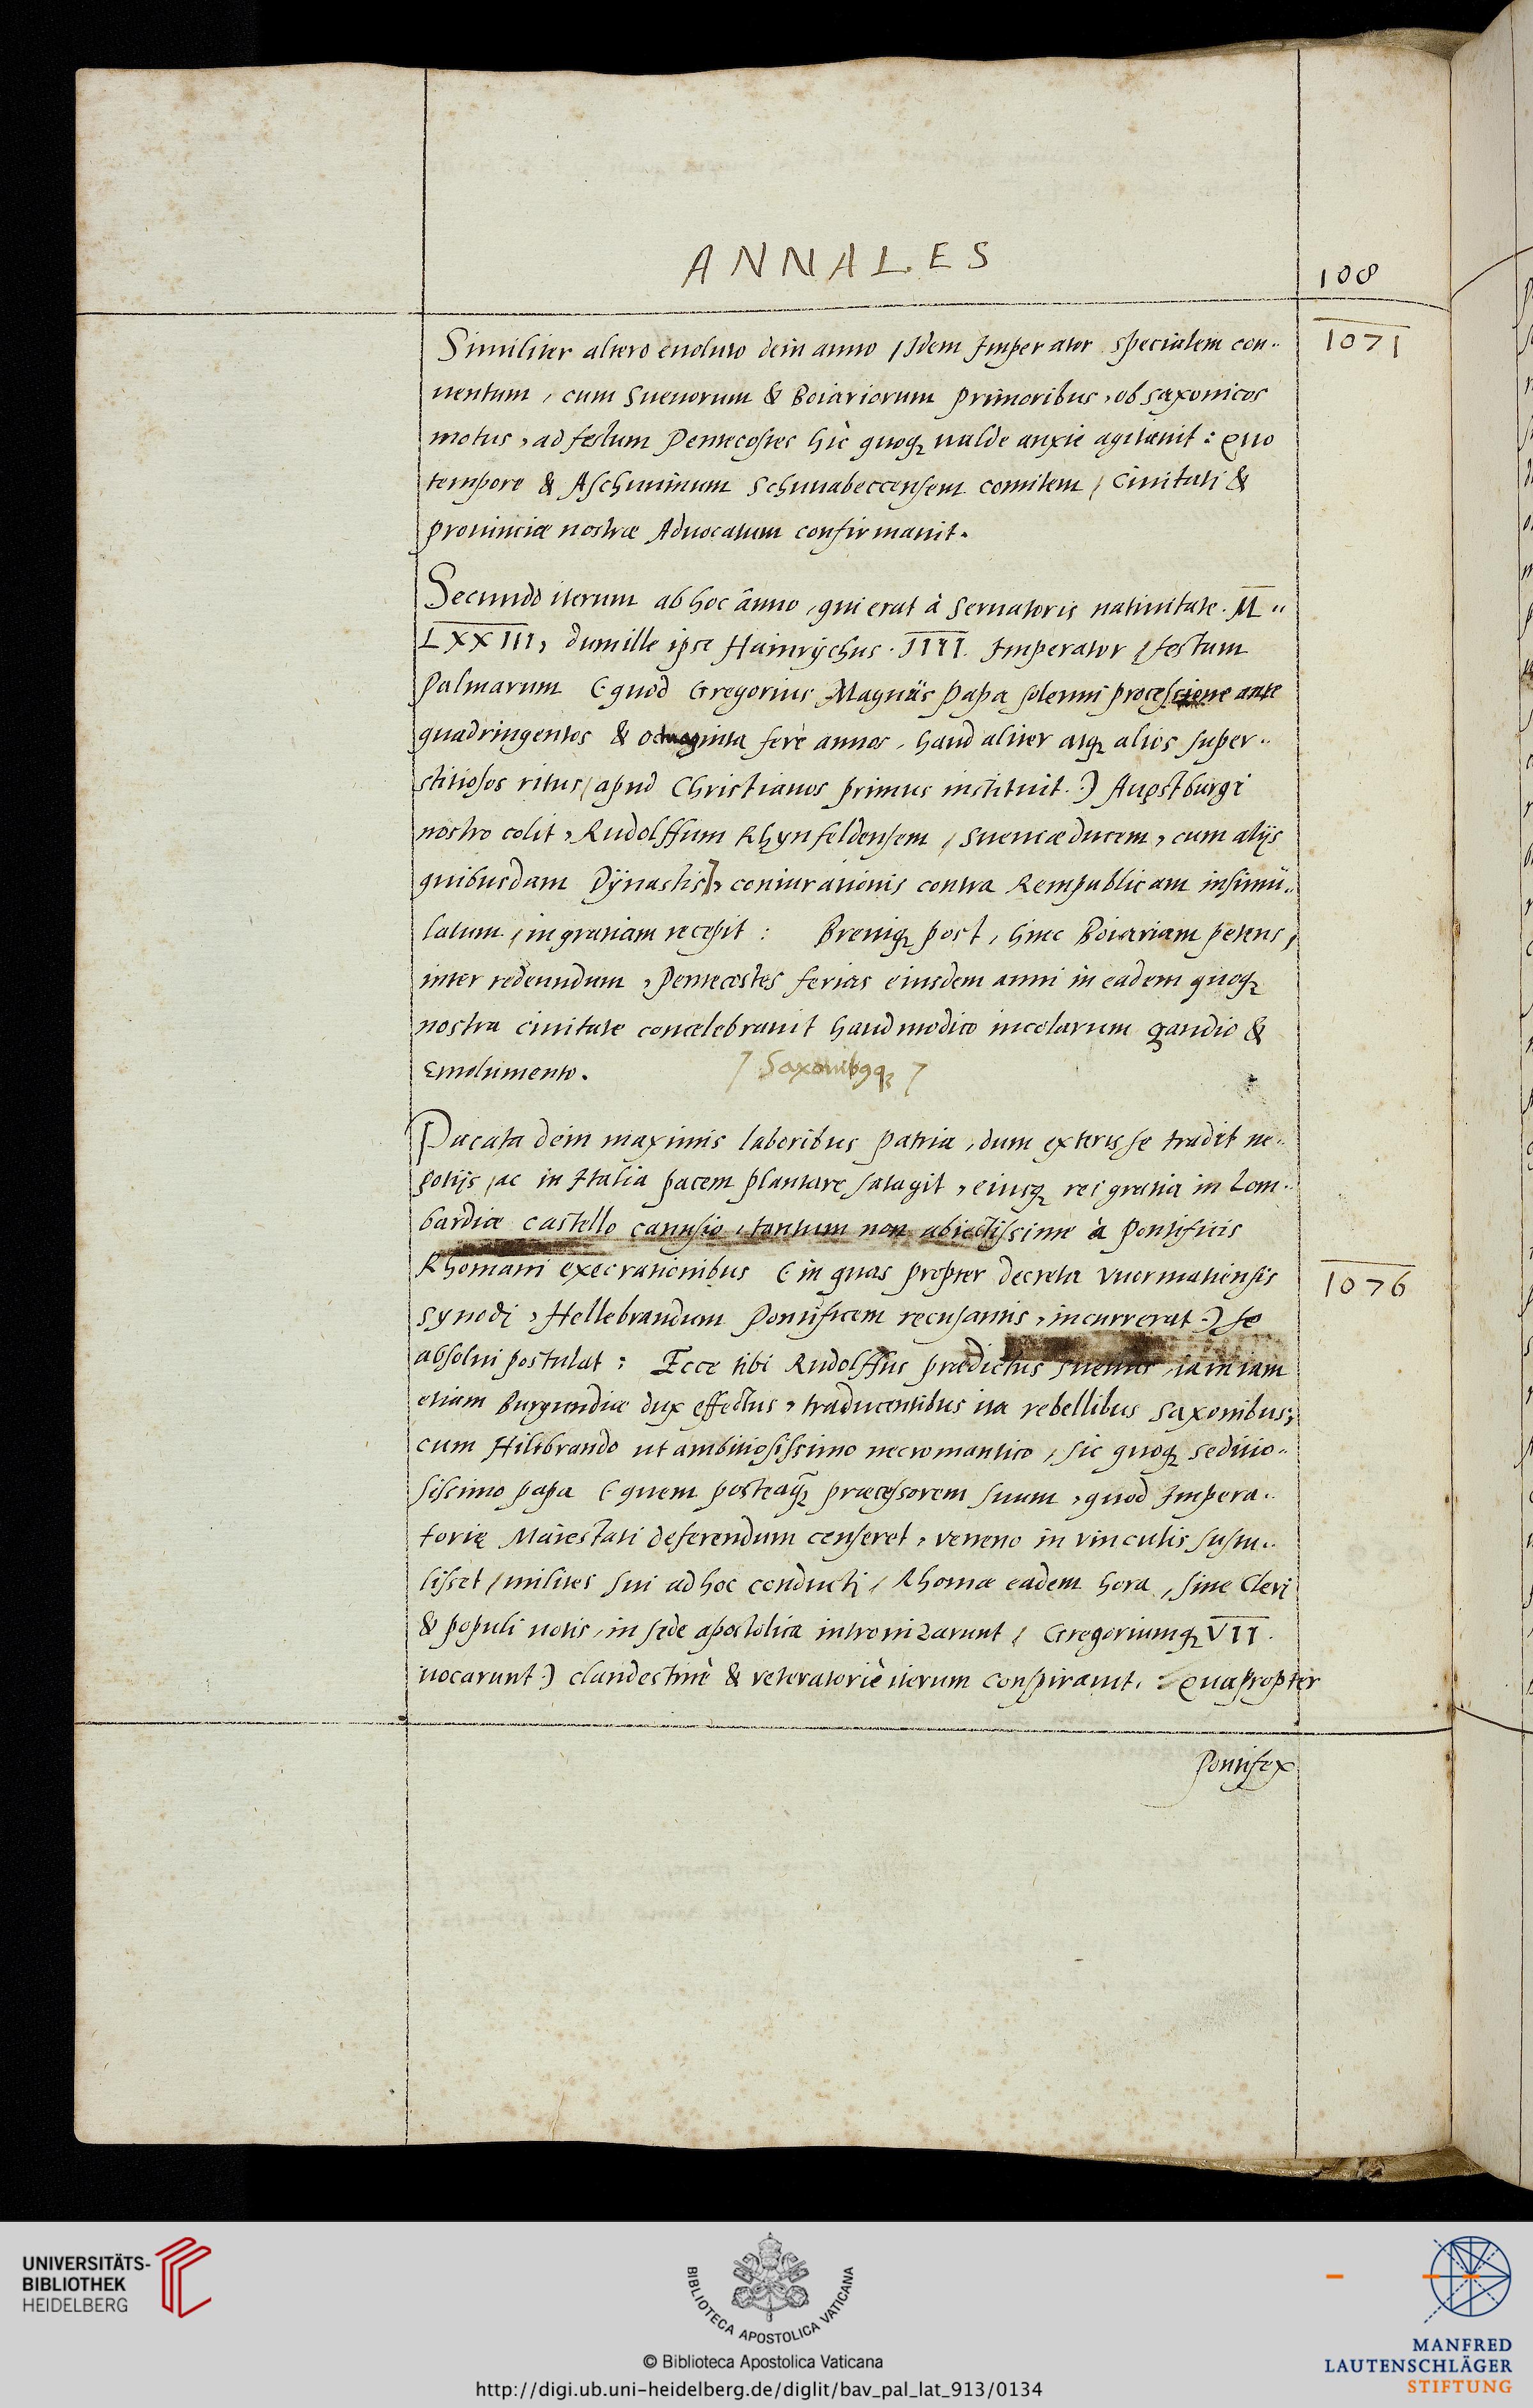 ANNALES
108
1071
Similiter altero euoluto dein anno / Idem Imperator specialem con..
uentum, cum Sueuorum & Boiariorum primoribus, ob Saxonicos
motus, ad festum Pentecostes hic quoq; ualde anxie agitauit: Quo
tempore & Aschuuinum Schuuabeccensem comitem / Ciuitati &
prouinciæ nostræ Aduocatum confirmauit.
Secundo iterum ab hoc anno, qui erat à Seruatoris natiuitate. M..
LXXIII, dum ille ipse Hainrÿchus. IIII. Imperator / festum
Palmarum (quod Gregorius Magnus Papa solenni processione ante
quadringentos & octuaginta ferè annos, haud aliter atq; alios super..
stitiosos ritus / apud Christianos primus instituit.) Augstburgi
nostro colit, Rudolffum Rhynfeldensem / Sueuiæ ducem, cum alijs
quibusdam Dÿnastis], coniurationis contra Rempublicam insimu..
latum / in gratiam recepit: Breuiq; post, hinc Boiariam petens,
inter redeundum, Pentecostes ferias eiusdem anni in eadem quoq;
nostra ciuitate concelebrauit haud modico incolarum gaudio &
Emolumento. ] Saxonibq; ]
Pacata dein maximis laboribus patria, dum exteris se tradit ne..
gotijs / ac in Italia pacem plantare satagit, eiusq; rei gratia in Lom..
bardiæ castello canusio, tantum non abiectissime à Pontificis
Rhomani execrationibus (in quas propter decreta Vuormatiensis
1076
Synodi, Hellebrandum Pontificem recusantis, incurrerat.) se
absolui postulat: Ecce tibi Rudolffus prædictus Sueuus, iam iam
etiam Burgundiæ dux effectus, traducentibus ita rebellibus Saxonibus,
cum Hilebrando ut ambitiosissimo necromantico, sic quoq; seditio..
sissimo papa (quem posteaq; præcessorem suum, quod Impera..
torię Maiestati deferendum censeret, veneno in vinculis sustu..
lisset / milites sui ad hoc conducti / Rhomæ eadem hora, sine Cleri
& populi uotis, in sede apostolica intronizarunt / Gregoriumq; VII.
uocarunt.) clandestinè & veteratoriè iterum conspirauit. Quapropter
Pontifex
UNIVERSITÄTS-
BIBLIOTHEK
HEIDELBERG
BIBLIOTECA APOSTOLICA VATICANA
© Biblioteca Apostolica Vaticana
http://digi.ub.uni-heidelberg.de/diglit/bav_pal_lat_913/0134
MANFRED
LAUTENSCHLÄGER
STIFTUNG